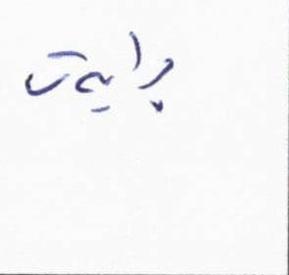 برایت